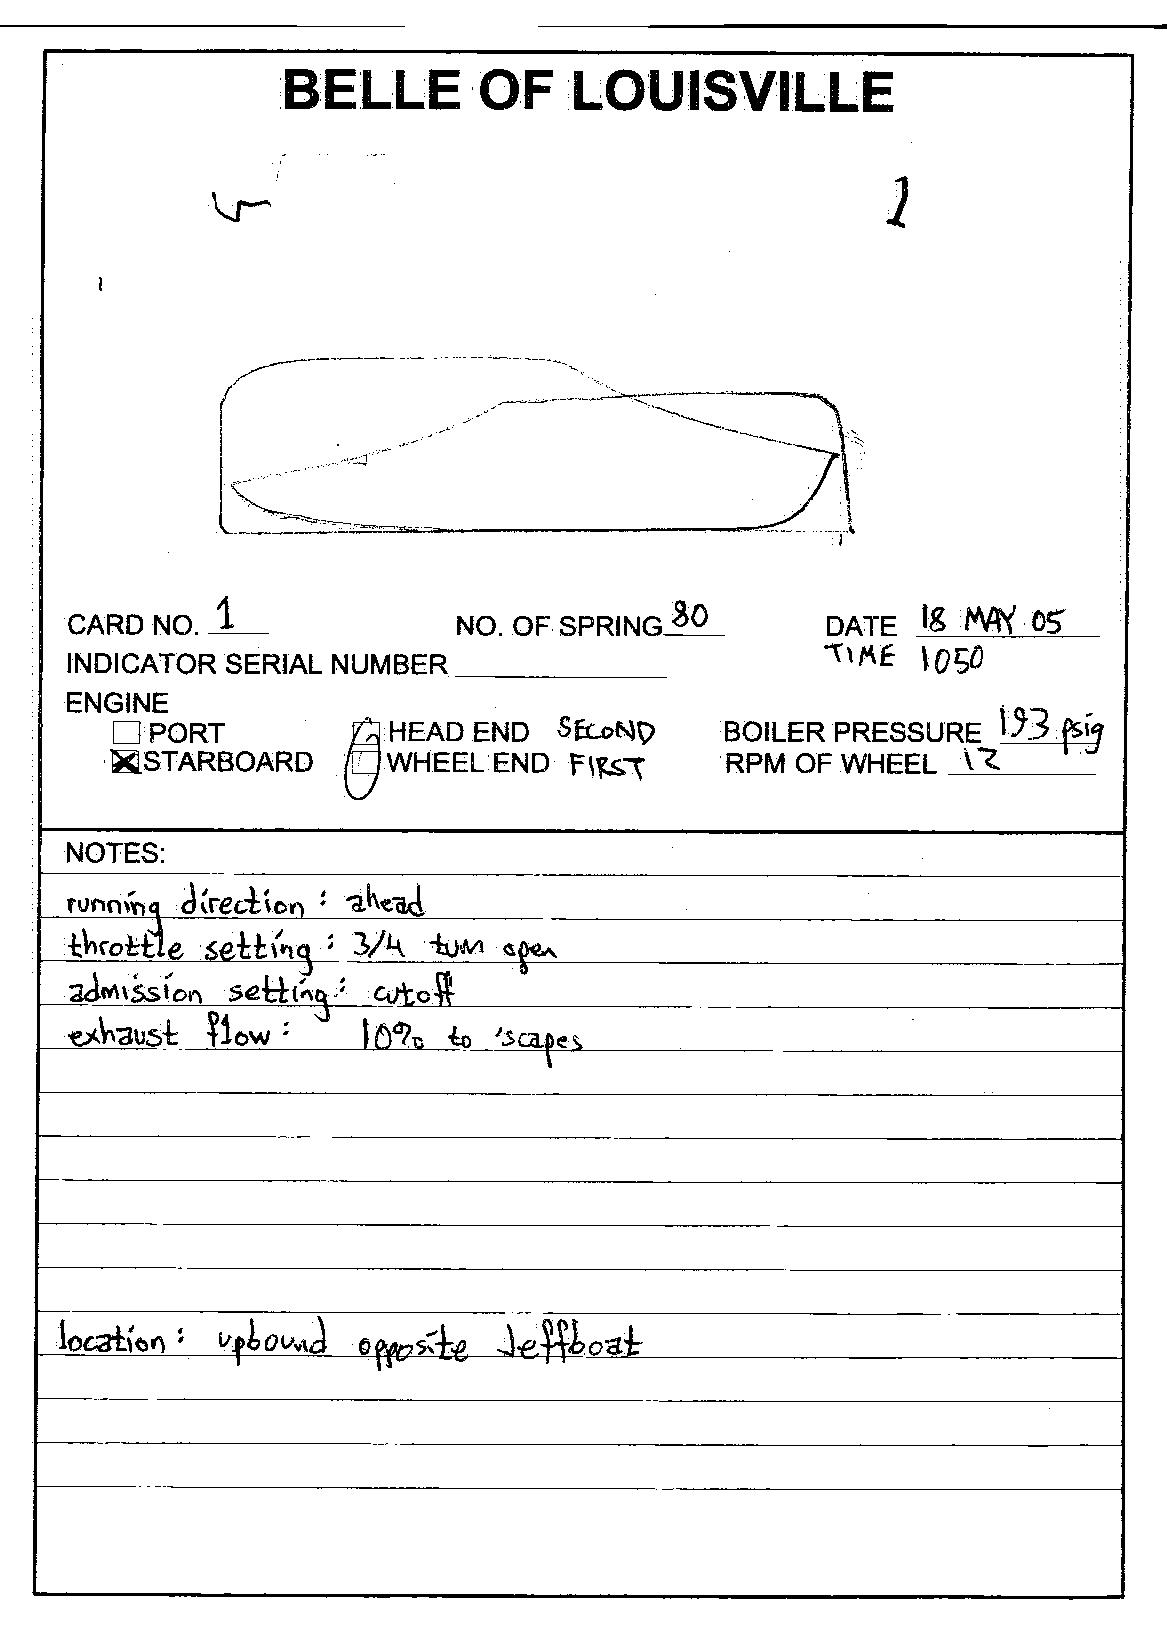 BELLE OF LOUISVILLE
1
CARD NO. 1 NO. OF SPRING 80 DATE 18 MAY 05
INDICATOR SERIAL NUMBER TIME 1050
ENGINE
PORT HEAD END SECOND BOILER PRESSURE 193 psig
STARBOARD WHEEL END FIRST RPM OF WHEEL 12
NOTES:
running direction: ahead
throttle setting: 3/4 turn open
admission setting: cutoff
exhaust flow: 10% to 'scapes
location: upbound opposite Jeffboat